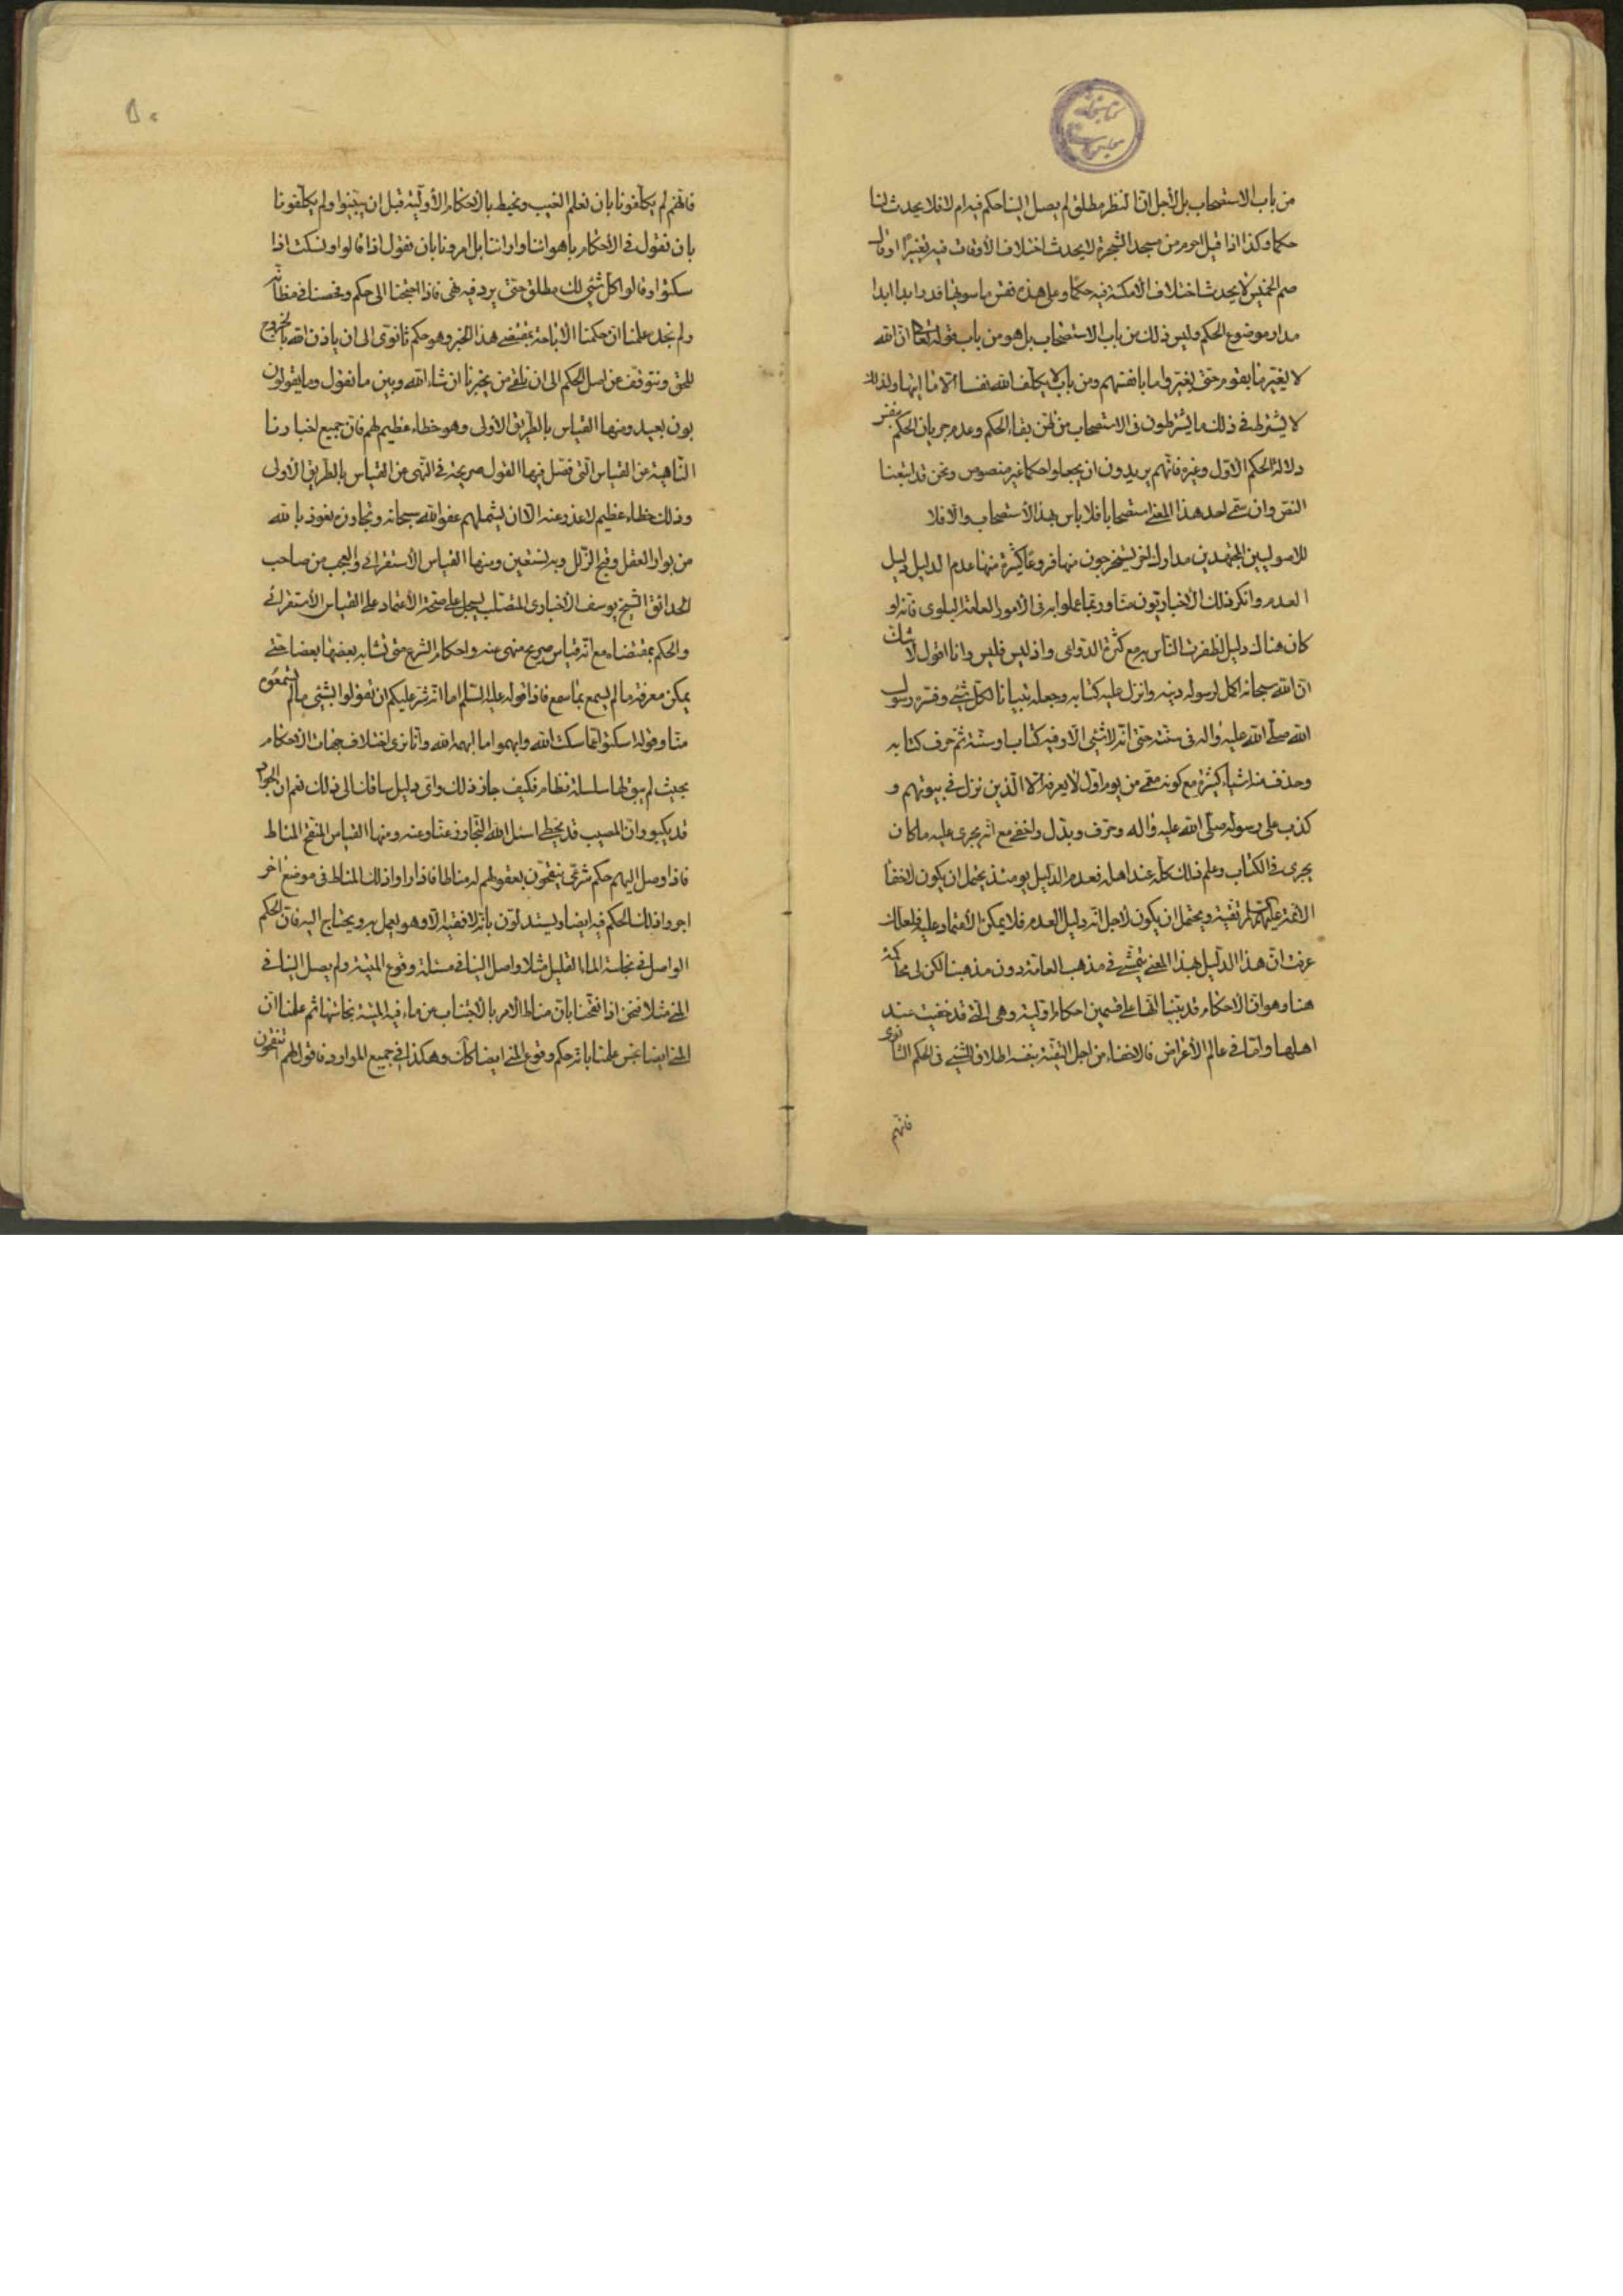 من باب الاستصحاب بل لاجل انا ننظر مطلق لم يصل الينا حكم فيه ام لا فلا يحدث لنا
حكما وكذا اذا قيل احرم من مسجد الشجرة لا يحدث اختلاف الأوقات فيه تغييرًا او قال
صم الخميس لا يحدث اختلاف الامكنة فيه حكمًا وعلى هذه فقس ما سويها فدر ابدا ابدا
مدار موضوع الحكم وليس ذلك من باب الاستصحاب بل هو من باب قوله تعالى ان الله
لا يغير ما بقوم حتى يغيروا ما بانفسهم ومن باب لا يكلف الله نفسا الا ما اتيها ولذلك
لا يشترط في ذلك ما يشترطون في الاستصحاب من ظن بقاء الحكم وعدم جريان الحكم
دلالة الحكم الاول وغيره فانهم يريدون ان يجعلوا حكما غير منصوص ونحن قد اتبعنا
النص وان سمى احد هذا المعنى استصحابا فلا باس بهذا الأستصحاب والا فلا
للاصوليين المجتهدين مدارك اخر يستخرجون منها فروعًا كثيرة منها عدم الدليل دليل
العدم وانكر ذلك الأخباريون منا وربما عملوا به في الأمور العامة البلوى فانه لو
كان هناك دليل لظفرت الناس به مع كثرة الدواعى واذ ليس فليس وانا اقول لا شك
ان الله سبحانه اكمل لرسوله دينه وانزل عليه كتابه وجعله تبيانا لكل شئ وفسره رسول
الله صلى الله عليه واله فى سنته حتى انه لا شئ الا وفيه كتاب او سنة ثم حرف كتابه
وحذف منه اشياء كثيرة مع كونه معمى من يوم اول لا يعرفه الا الذين نزل في بيوتهم و
كذب على رسوله صلى الله عليه واله وحرف وبدل واخفى مع انه يجرى عليه ما كان
يجرى في الكتاب وعلم ذلك كله عند اهله فعدم الدليل يومئذ يحتمل ان يكون لاخفا
الائمة عليهم السلام له تقية ويحتمل ان يكون لأجل انه دليل العدم فلا يمكن الأعتماد عليه فلعلك
عرفت ان هذا الدليل بهذا المعنى يتمشى في مذهب العامة دون مذهبنا لكن لى محاكمة
هنا وهو ان الاحكام قد بينا انها على قسمين احكام اولية وهى التي قد خفيت عند
اهلها واما في عالم الأغراض فالاخفاء من اجل التقية بنفسه اطلاق الشئ فى الحكم الثانوى
فانهم
٥٠
فانهم لم يكلفونا بان نعلم الغيب ونحيط بالاحكام الأولية قبل ان يبينوا ولم يكلفونا
بان نقول في الأحكام باهوائنا وارائنا بل امرونا بان نقول اذا قالوا ونسكت اذا
سكتوا وقالوا كل شئ لك مطلق حتى يرد فيه نهى فاذا احتجنا الى حكم وفحصنا في مظانه
ولم نجد علمنا ان حكمنا الاباحة بمقتضى هذا الخبر وهو حكم ثانوى الى ان ياذن الله بالخروج
للحق ونتوقف عن اصل الحكم الى ان نلقى من يخبرنا ان شاء الله وبين ما نقول وما يقولون
بون بعيد ومنها القياس بالطريق الأولى وهو خطاء عظيم لهم فان جميع اخبارنا
الناهية عن القياس التي فصل فيها القول صريحة في النهى عن القياس بالطريق الأولى
وذلك خطاء عظيم لا عذر عنه الا ان يشملهم عفو الله سبحانه وتجاوزه نعوذ بالله
من بوار العقل وقبح الزلل وبه نستعين ومنها القياس الأستقرائى والعجب من صاحب
الحدائق الشيخ يوسف الأخبارى المتصلب يسجل على صحة الأعتماد على القياس الأستقرائى
والحكم بمقتضاه مع انه قياس صريح منهى عنه واحكام الشرع متى تشابه بعضها بعضا حتى
يمكن معرفة ما لم يسمع بما سمع فاذا قوله عليه السلم اما انه شر عليكم ان تقولوا بشئ ما لم تسمعوه
منا وقوله اسكتوا عما سكت الله وابهموا ما ابهمه الله وانا نرى اختلاف جهات الاحكام
بحيث لم يبق لها سلسلة نظام فكيف جاز ذلك واى دليل ساقك الى ذلك نعم ان الجواد
قد يكبو وان المصيب قد يخطى اسئل الله التجاوز عنا وعنه ومنها القياس المنقح المناط
فاذا وصل اليهم حكم شرعى ينقحون بعقولهم له مناطا فاذا راوا ذلك المناط فى موضع اخر
اجروا ذلك الحكم فيه ايضا ويستدلون بانه لا فقيه الا وهو يعمل به ويحتاج اليه فان الحكم
الواصل في نجاسة الماء القليل مثلا واصل الينا في مسئلة وقوع الميتة ولم يصل الينا في
المنى مثلا فنحن اذا نقحنا بان مناط الامر بالاجتناب عن ماء فيه الميتة نجاستها ثم علمنا ان
المنى ايضا نجس علمنا بانه حكم وقوع المنى ايضا كك وهكذا في جميع الموارد فاقول لهم اتنقحون